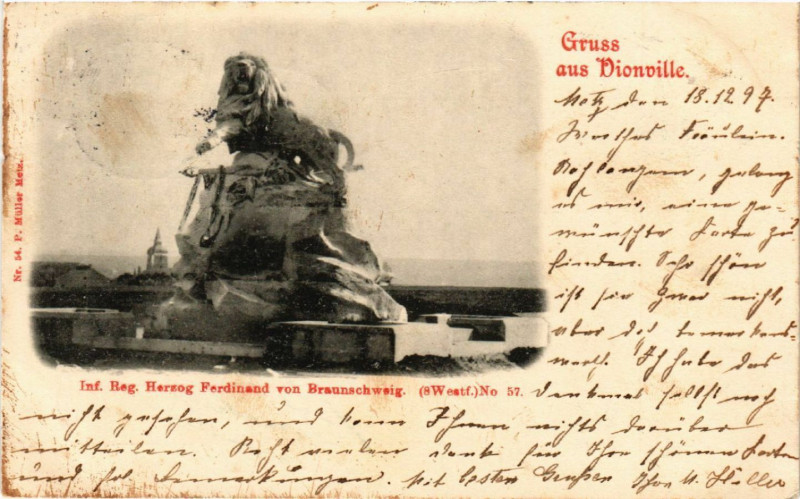 Gruss
aus Vionville.
Metz den 18.12.97.
Werthes Fräulein.
Nach langem, gelang
es mir, eine ge-
wünschte Karte zu
finden. Sehr schön
ist sie zwar nicht,
aber doch bemerkens-
werth. Ich habe das
Denkmal selbst noch
nicht gesehen, und kann Ihnen nichts darüber
mitteilen. Recht vielen Dank für Ihre schönen Karten
und Bemerkungen. Mit besten Grüßen Ihr
Nr. 54. P. Müller Metz.
Inf. Reg. Herzog Ferdinand von Braunschweig. (8Westf.)No 57.